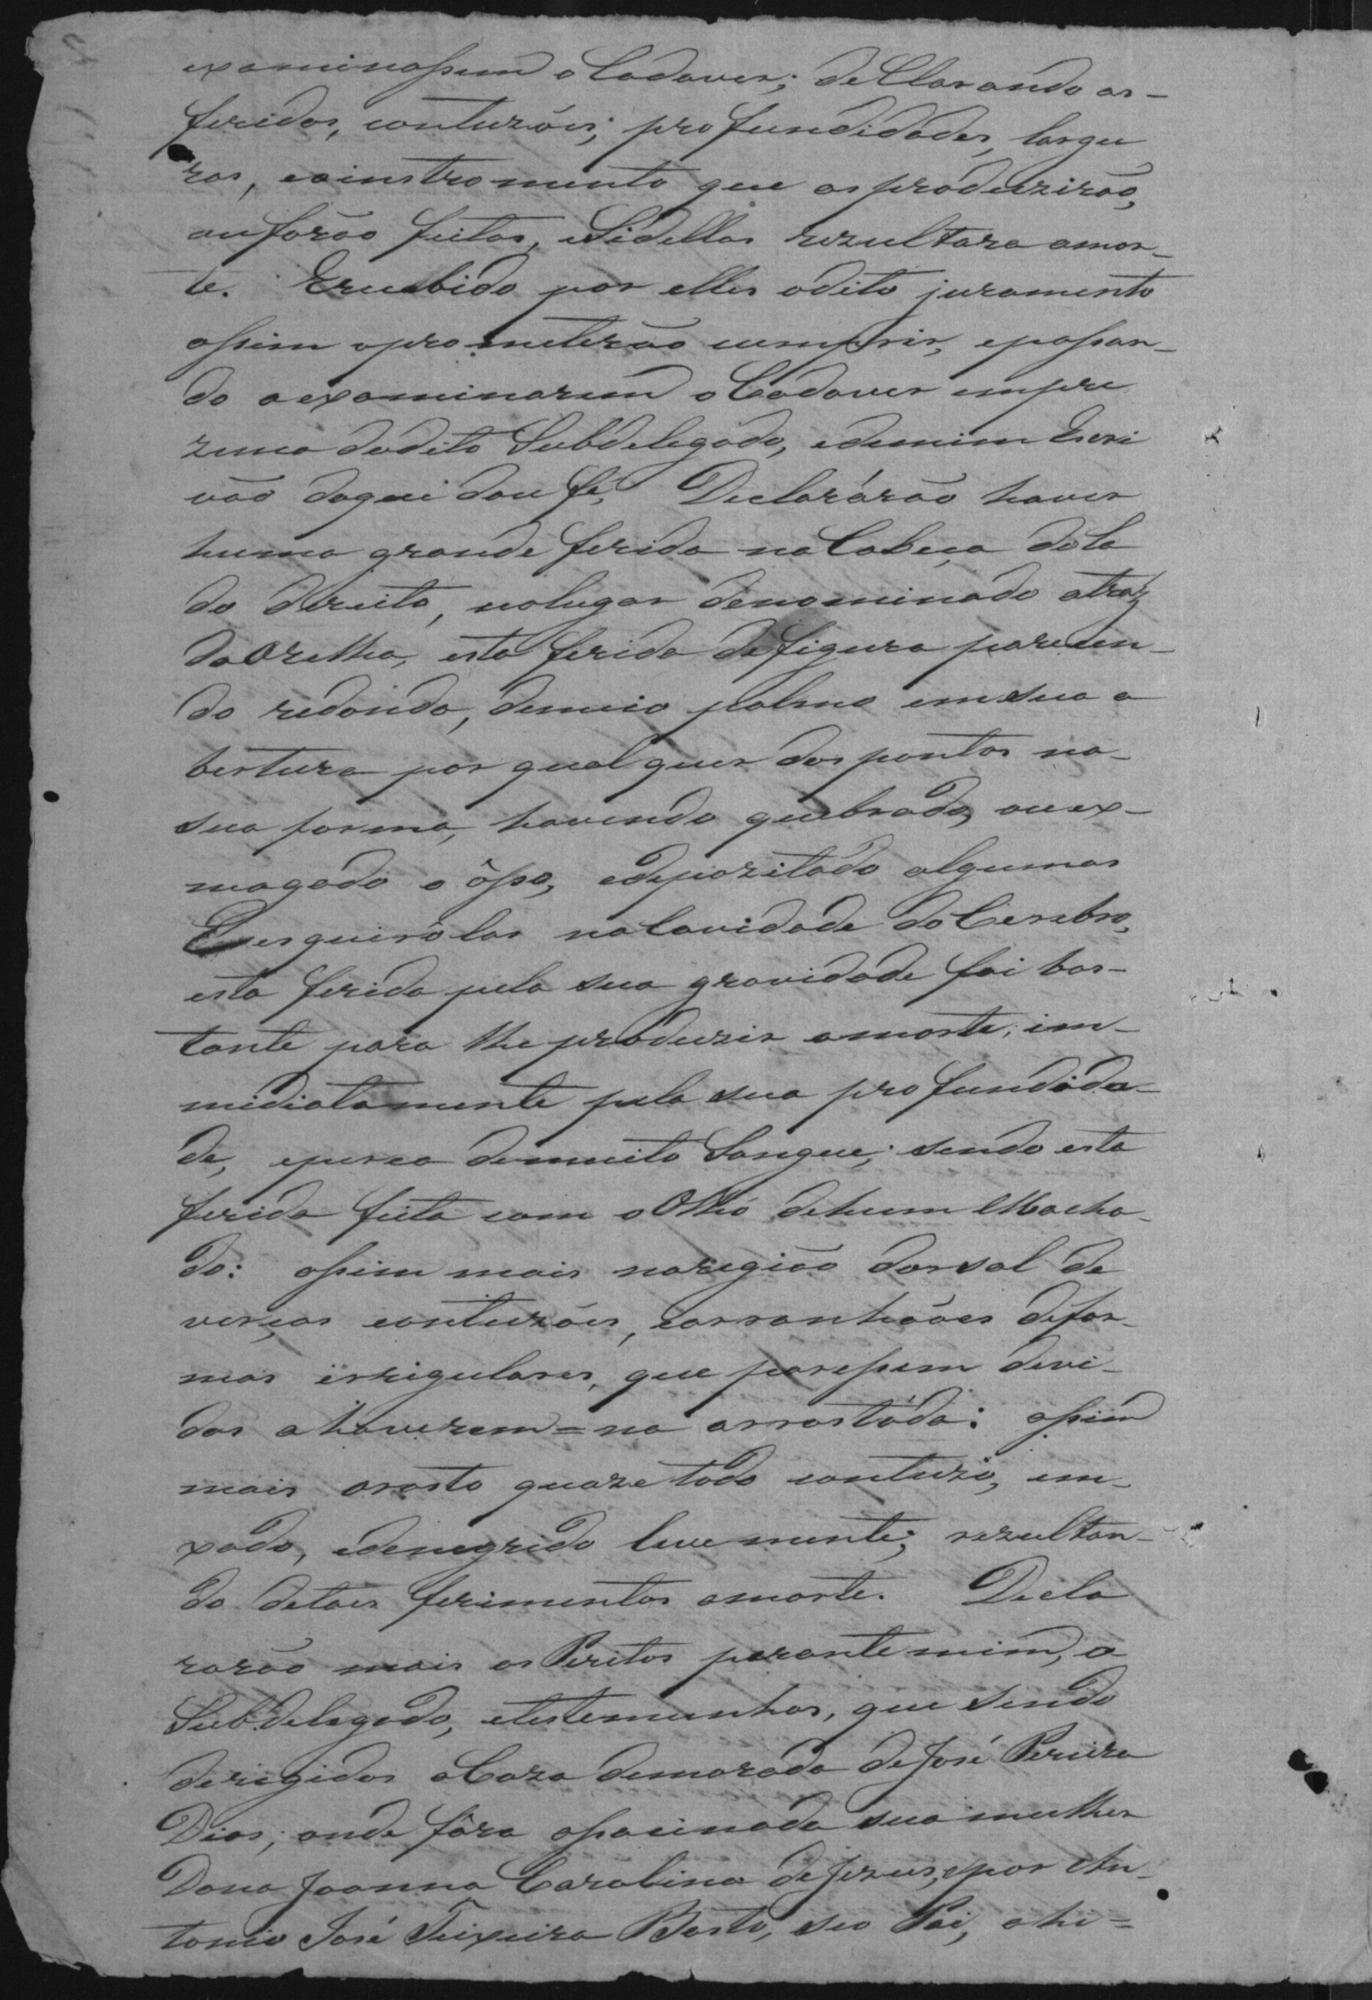 examinassem o Cadaver; declarando as
feridas, contuzões; profundidades, largu
ras, eoinstromento que asproduzirão,
ou forão feitas, eSidellas rezultara amor-
te. Erecebido por elles odito juramento
assim oprometerão cumprir, epassan-
do aexaminarem o Cadaver empre
zença dodito Subdelegado, edemim Escri
vão doque dou fé, Declarárão haver
huma grande ferida na Cabeça do la
do direito, nolugar denominado atraz
daOrelha, esta ferida de figura parecen-
do redonda, demeio palmo em sua a
bertura por qual quer dos pontos na-
sua forma, havendo quebrado, ou ex-
magado o ôsso, edepozitado algumas
Esquirôlas naCavidade do Cerebro,
esta ferida pela sua gravidade foi bas-
tante para lhe produzir amorte, im-
mediatamente pela sua profundida-
de, eperca demuito Sangue; sendo esta
ferida feita com o Olho dehum Macha-
do: assim mais naregião dorsal de
verças contuzões, earranhões defor-
mas irrigulares, que paressem devi-
das a haverem=na arrastáda: assim
mais orosto quaze todo contuzo, in-
xado, edenegrido levemente; rezultan-
do detaes ferimentos amorte. Decla
rarão mais os Peritos perante mim, o
Subdelegado, etestemunhas, que sendo
dirigidos aCaza demorada deJosé Pereira
Dias, onde fôra assacinada sua mulher
Dona Joanna Carolina deJezus, epor An-
tonio José Teixeira Basto, seo Pai, ahi=